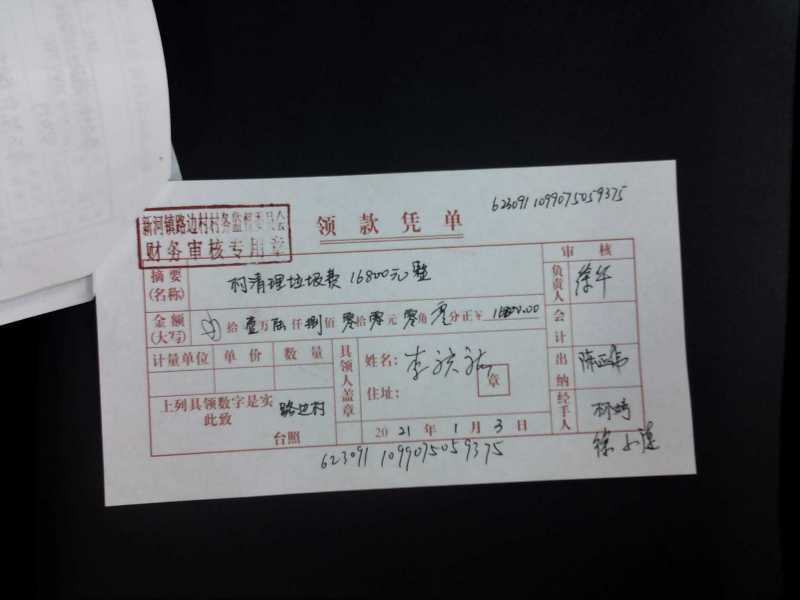 623091 1099075059375
新河镇路边村村务监督委员会
财务审核专用章
领款凭单
摘要(名称) 村清理垃圾费 16800元整
审核
负责人 徐华
金额(大写) 拾壹万陆仟捌佰零拾零元零角零分正¥ 16800.00
会计
计量单位 单价 数量
具领人盖章
姓名: 李
住址:
章
出纳
上列具领数字是实
此致
路边村
台照
2021年1月3日
经手人 林
徐小
623091 1099075059375